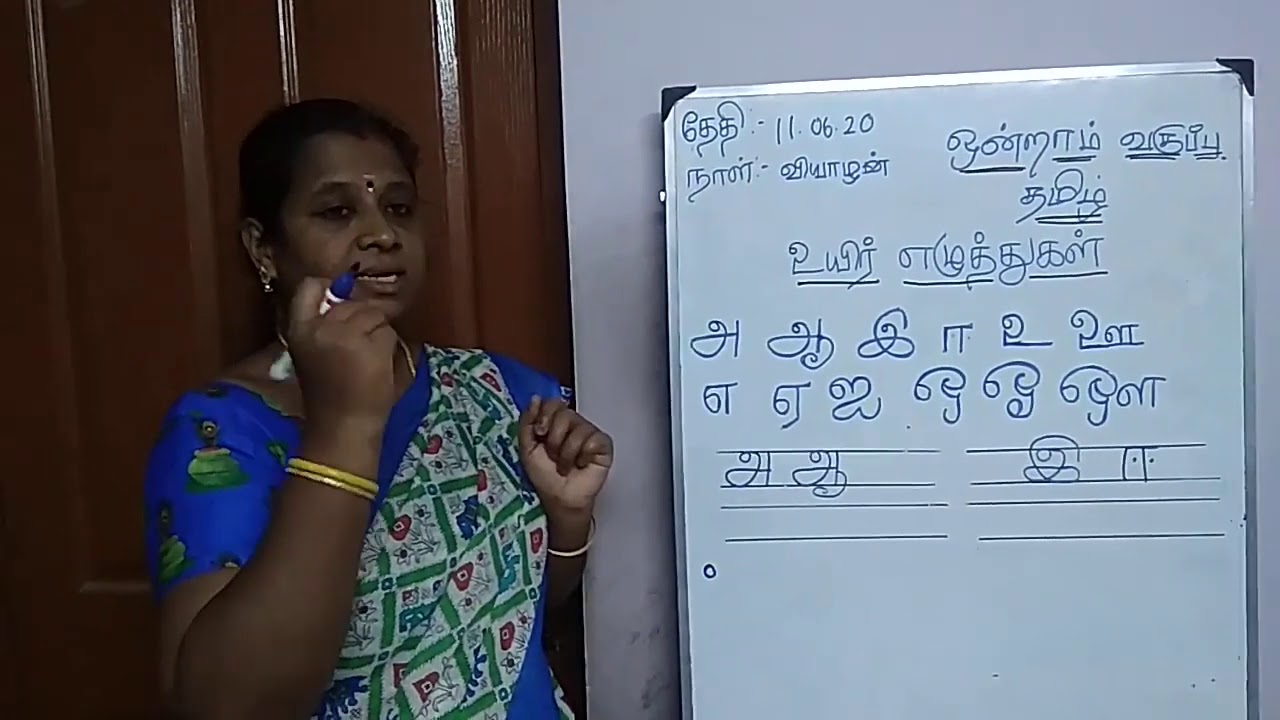 தேதி:- 11.06.20
ஒன்றாம் வகுப்பு
நாள்:- வியாழன்
தமிழ்
உயிர் எழுத்துகள்
அ ஆ இ ஈ உ ஊ
எ ஏ ஐ ஒ ஓ ஔ
அ ஆ இ ஈ